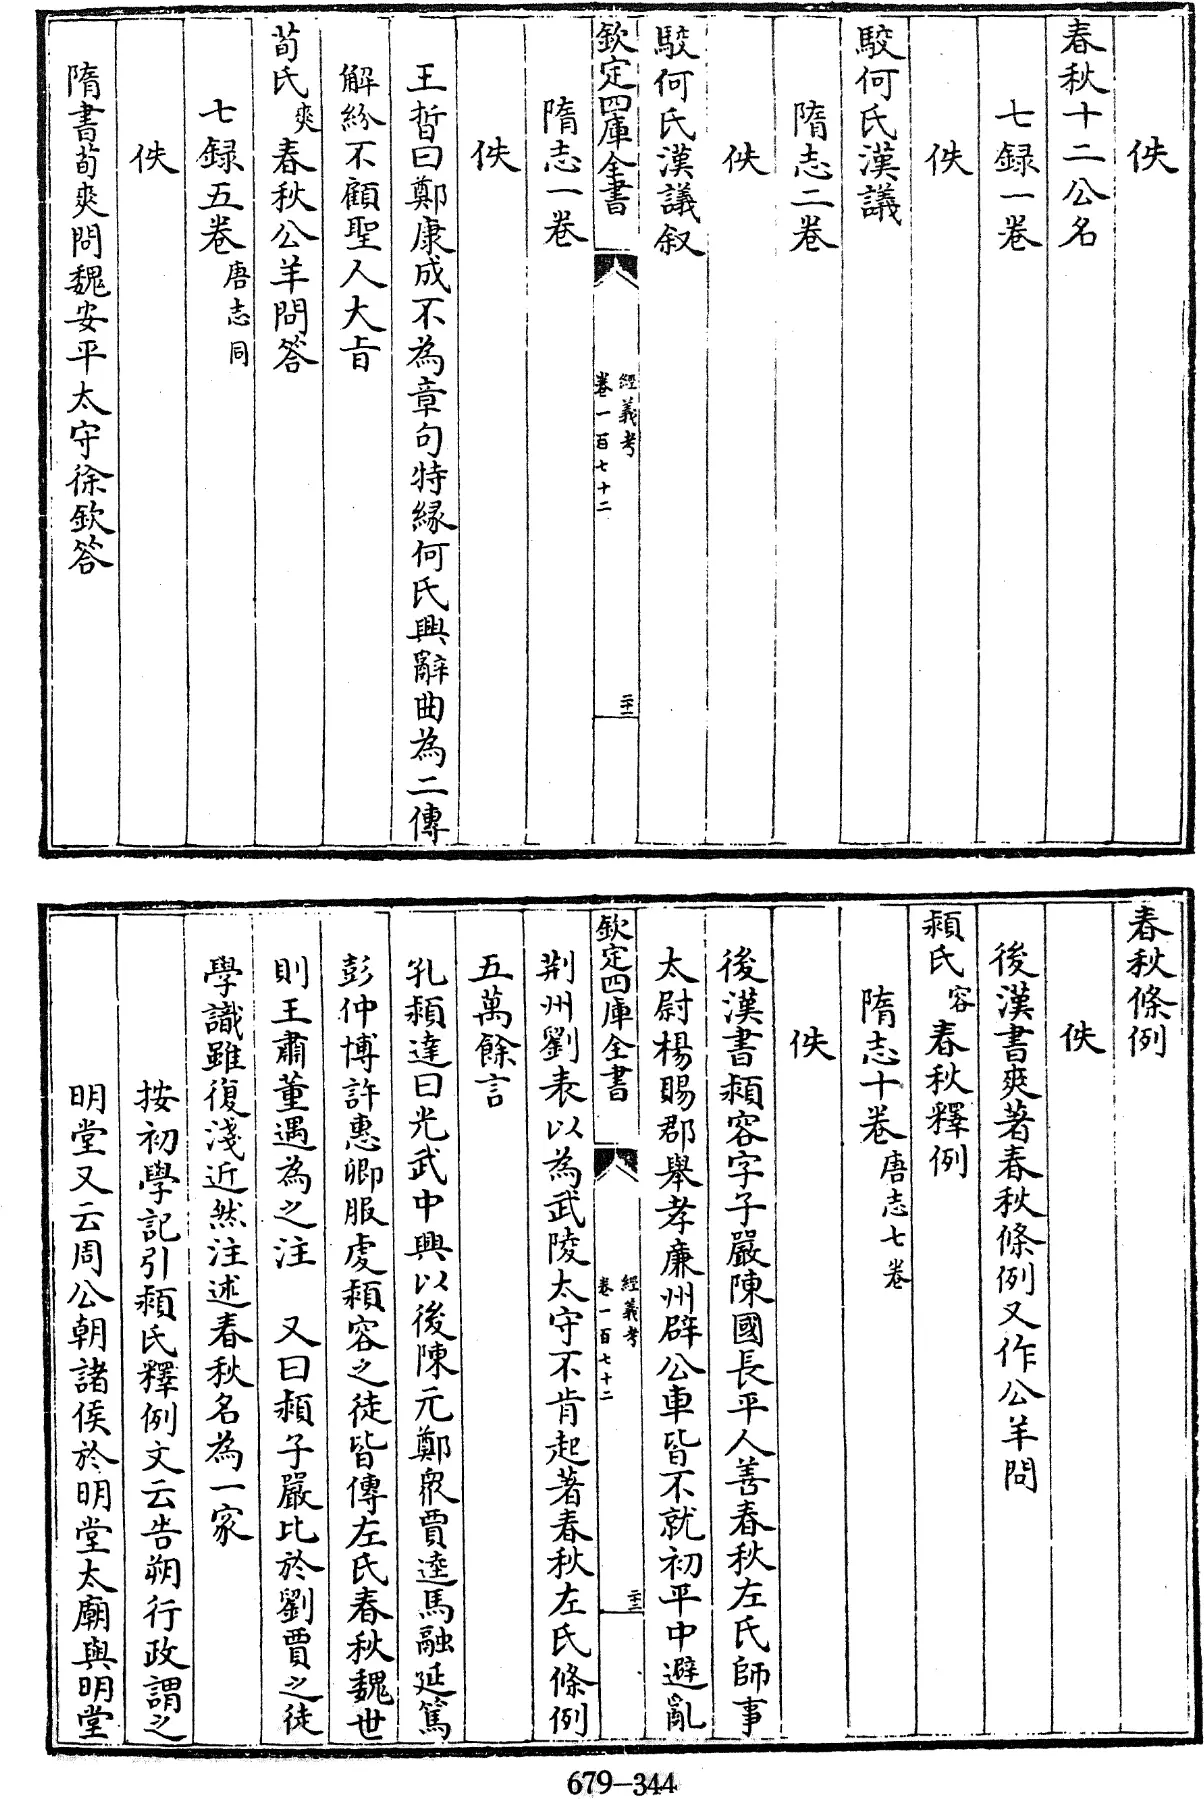 佚
春秋十二公名
七録一卷
佚
駁何氏漢議
隋志二卷
佚
駁何氏漢議叙
欽定四庫全書
經義考
卷一百七十二
二十二
隋志一卷
佚
王晳曰鄭康成不為章句特縁何氏興辭曲為二傳
解紛不顧聖人大㫖
荀氏爽春秋公羊問答
七録五卷唐志同
佚
隋書荀爽問魏安平太守徐欽答
春秋條例
佚
後漢書爽著春秋條例又作公羊問
頴氏容春秋釋例
隋志十卷唐志七卷
佚
後漢書頴容字子嚴陳國長平人善春秋左氏師事
太尉楊賜郡舉孝廉州辟公車皆不就初平中避亂
欽定四庫全書
經義考
卷一百七十二
二十三
荆州劉表以為武陵太守不肯起著春秋左氏條例
五萬餘言
孔頴達曰光武中興以後陳元鄭衆賈逵馬融延篤
彭仲博許惠卿服虔頴容之徒皆傳左氏春秋魏世
則王肅董遇為之注 又曰頴子嚴比於劉賈之徒
學識雖復淺近然注述春秋名為一家
按初學記引頴氏釋例文云告朔行政謂之
明堂又云周公朝諸侯於明堂太廟與明堂
679-344